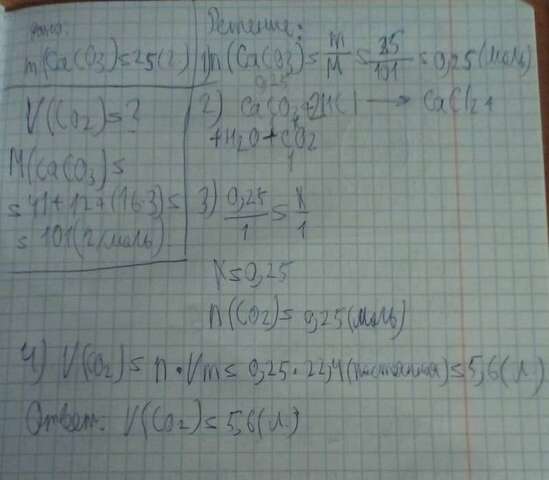 Дано:
m(CaCO3)=25(г)
V(CO2)=?
M(CaCO3)=
=41+12+(16·3)=
=101(г/моль)
Решение:
1) n(CaCO3)=m/M=25/101=0,25(моль)
0,25
2) CaCO3+2HCl → CaCl2+
x
+H2O+CO2
1
3) 0,25/1=x/1
x=0,25
n(CO2)=0,25(моль)
4) V(CO2)=n·Vm=0,25·22,4(постоянная)=5,6(л)
Ответ: V(CO2)=5,6(л.)